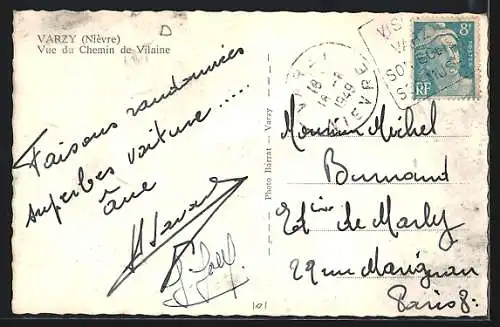 VARZY (Nièvre)
Vue du Chemin de Vilaine
D
Faisons randonnées
superbes voiture .....
âne
Photo Barrat - Varzy
VARZY
18
1949
NIEVRE
VISI
8F
POSTES
RF
Monsieur Michel
Burnand
Etière de Marly
22 rue Marignan
Paris 8e
101